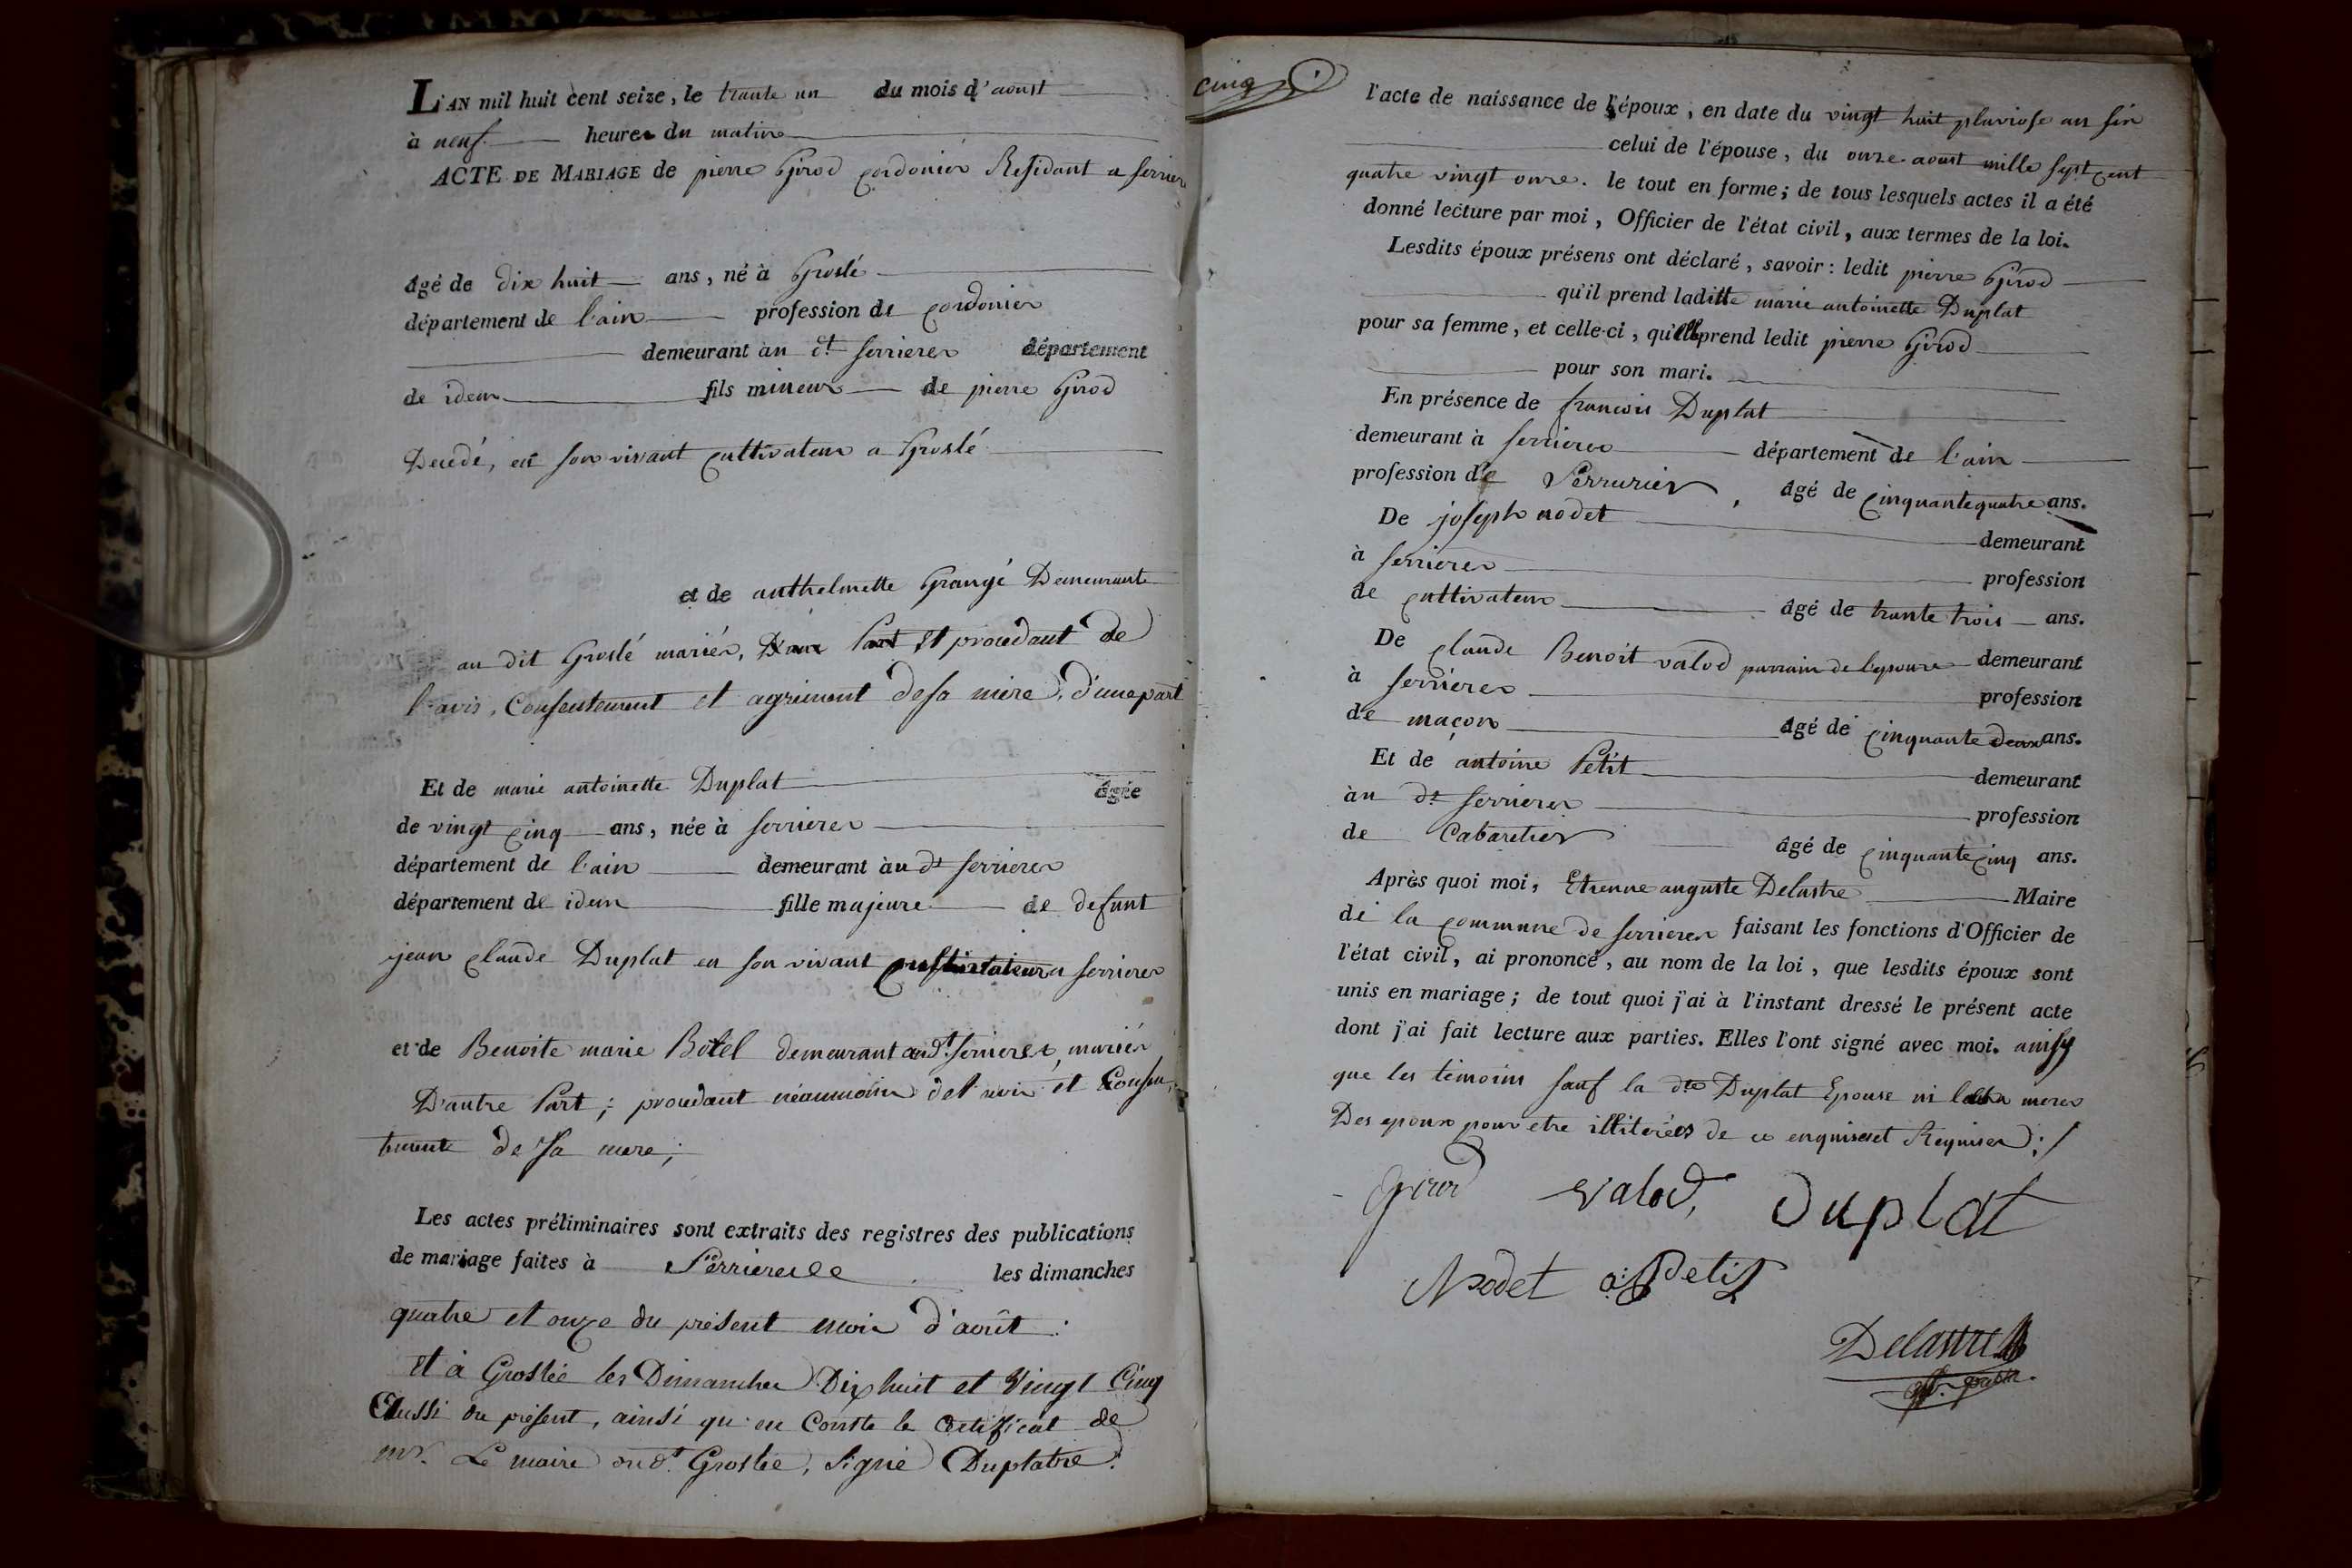 L'AN mil huit cent seize, le trante un du mois d'aoust
à neuf heures du matin
ACTE DE MARIAGE de pierre Girod cordonier Residant a serriere
âgé de dix huit ans, né à Groslé
département de l'ain profession de cordonier
demeurant au dt serrieres département
de idem fils mineur de pierre Girod
Decedé, en son vivant cultivateur a Groslé
et de anthelmette Grangé Demeurante
au dit Groslé mariés, D'une Part et procedant de
l'avis, Consentement et agriment de sa mère, d'une part
Et de marie antoinette Duplat âgée
de vingt cinq ans, née à serrieres
département de l'ain demeurant au dt serrieres
département de idem fille majeure de defunt
jean claude Duplat en son vivant cultivateur a serrieres
et de Benoite marie Botel demeurant au dt serrieres, mariés
D'autre Part; procedant néaumoins de l'avis et Consen-
tement de sa mere;
Les actes préliminaires sont extraits des registres des publications
de mariage faites à Serrieres les dimanches
quatre et onze du présent mois d'août :
Et à Groslée les Dimanches Dix huit et Vingt Cinq
Aussi du présent, ainsi qu'en Conste le Certificat de
mr. Le maire dudt Groslée, Signé Duplatre.
cinq
l'acte de naissance de l'époux, en date du vingt huit pluviose an six
celui de l'épouse, du onze aoust mille sept cent
quatre vingt onze. le tout en forme; de tous lesquels actes il a été
donné lecture par moi, Officier de l'état civil, aux termes de la loi.
Lesdits époux présens ont déclaré, savoir : ledit pierre Girod
qu'il prend laditte marie antoinette Duplat
pour sa femme, et celle-ci, qu'elle prend ledit pierre Girod
pour son mari.
En présence de francois Duplat
demeurant à serrieres département de l'ain
profession de Serrurier, âgé de cinquante quatre ans.
De joseph nodet demeurant
à serrieres profession
de cultivateur âgé de trante trois ans.
De claude Benoit valod parrain de l'epouse demeurant
à serrieres profession
de maçon âgé de cinquante deux ans.
Et de antoine Petit demeurant
au dt serrieres profession
de Cabaretier âgé de cinquante cinq ans.
Après quoi moi, Etienne auguste Delastre Maire
de la commune de serrieres faisant les fonctions d'Officier de
l'état civil, ai prononcé, au nom de la loi, que lesdits époux sont
unis en mariage; de tout quoi j'ai à l'instant dressé le présent acte
dont j'ai fait lecture aux parties. Elles l'ont signé avec moi. ainsy
que les témoins sauf la dte Duplat Epouse ni les meres
Des epoux pour etre illiterées de ce enquises et Requises :/
Girod Valod, Duplat
Nodet a: Petit
Delastre